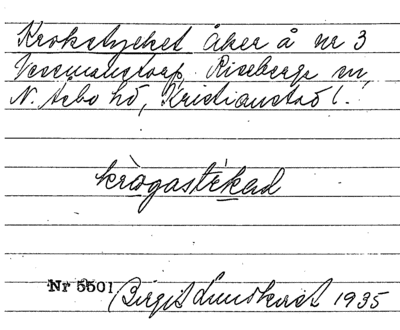 Krokstycket åker å nr 3
Vessmantorp, Riseberga sn,
N. Åsbo hd, Kristianstad l.
krògastỳkad
Nr 5501 Birgit Lundkvist 1935